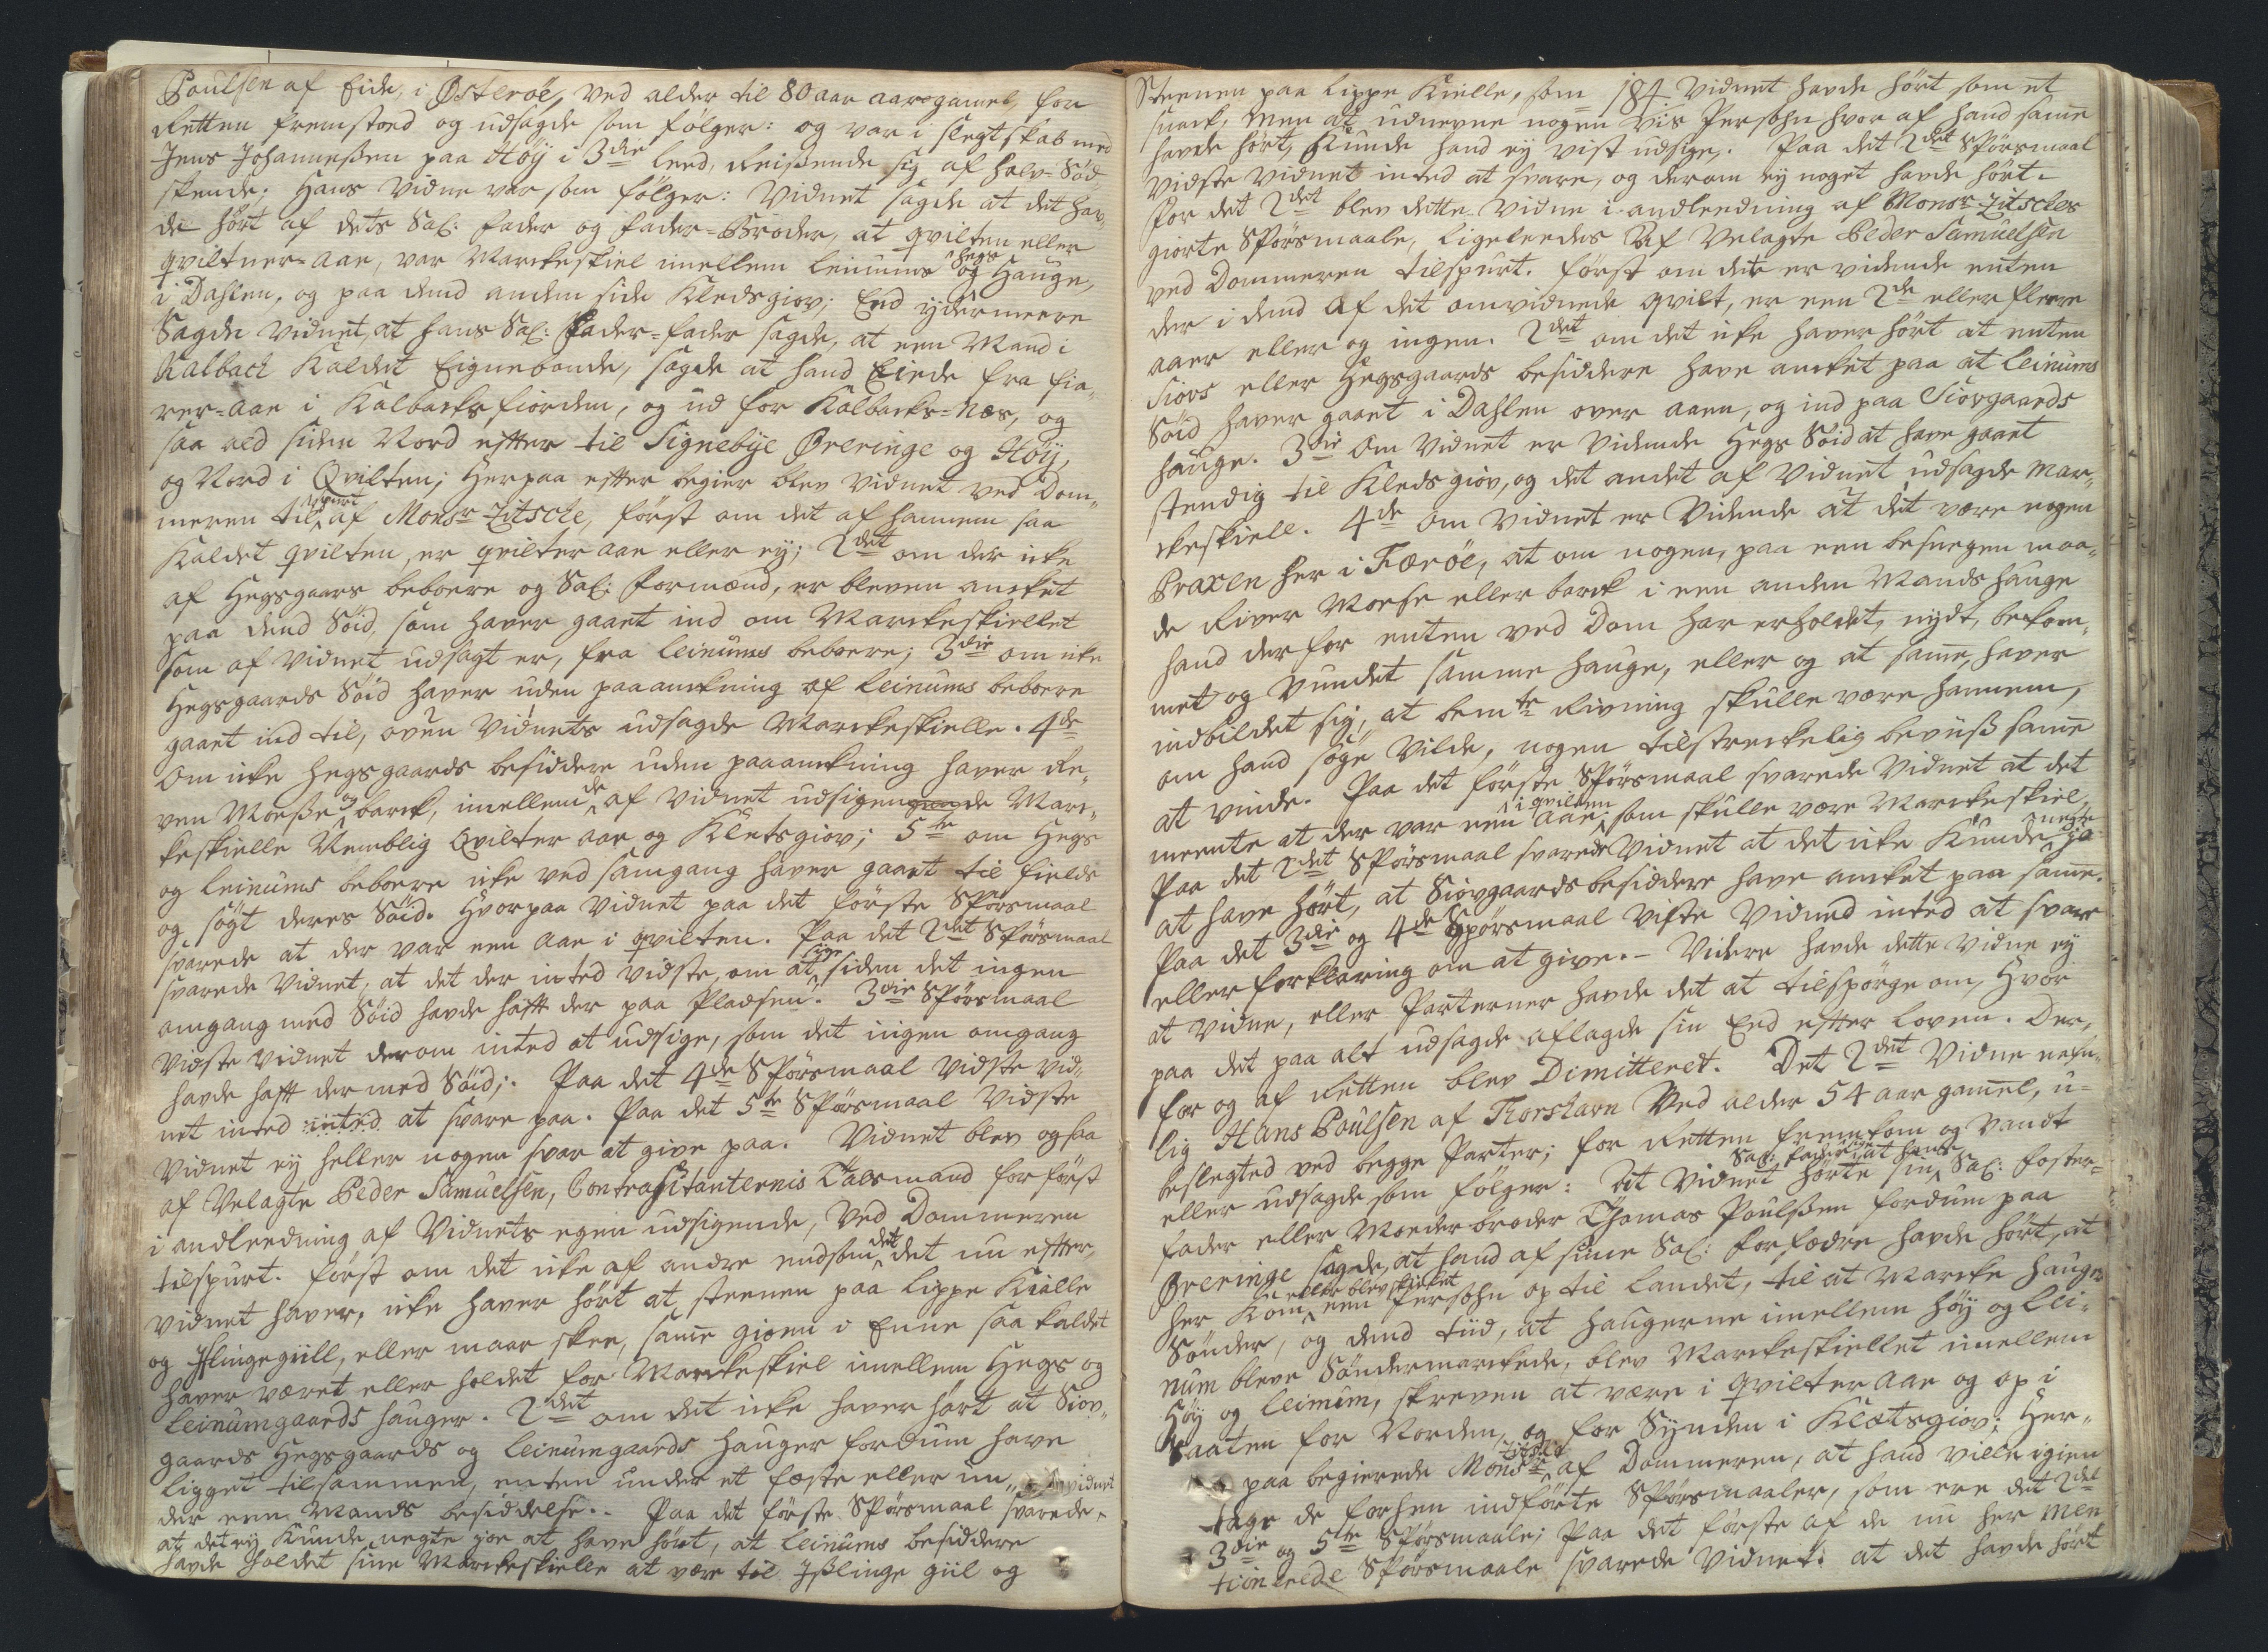 Poulsen af Eide, i Østerøe, ved alder til 80 aar aar gamel, for
Retten fremstoed og udsagde som følger: og var i slegtskab med
Jens Johannessen paa Høy i 3die leed, Reisende sig af halv-Sød¬
skende. Hans Vidne var som følger: Vidnet sagde at det hav¬
de hørt af dets Sal: Fader og Fader-Broder, at qvilten eller
qviltner-Aae, var Marckeskiel imellem Leinums Hegs og Hauge,
i Dahlen, og paa dend anden side Kledsgiov; End ydermeere
Sagde Vidnet, at hans Sal: Fader-Fader sagde, at een Mand i
Kalback Kaldet Eignebonde, sagde at hand Eiede fra Fia¬
rer-Aae i Kalbacksfiorden, og ud for Kalbacks-Næs, og
saa ald siden Nord efter til Signebye Qrelringe og Høy,
og Nord i Qvilten; Herpaa efter begier blev Vidnet ved Dom¬
meren tilspurt af Monsr Zitsche, først om det af hannem saa
Kaldet qvilten, er qvilter Aae eller ey; 2det om der icke
af Hegsgaars beboere og Sal: Formænd, er bleven ancket
paa dend Søid, som haver gaaet ind om Marckeskiellet
som af Vidnet udsagt er, fra Leinums beboere; 3die om icke
Hegsgaards Søid haver uden paaanckning af Leinums beboere
gaaet ind til, oven Vidnets udsagde Marckeskielle. 4de
Om icke Hegsgaards besiddere uden paaanckning haver Re¬
ven Moesse og barck, imellem de af Vidnet udsigende Marc¬
keskielle Nemblig Qvilter Aae og Kletsgiov; 5te om Hegs
og Leinums beboere icke ved samgang haver gaaet til Fields
og søgt deres Søid. Hvorpaa Vidnet paa det første Spørsmaal
svarede at der var een Aae i qvilten. Paa det 2det Spørsmaal
svarede Vidnet, at det der inted vidste, om at sige siden det ingen
omgang med Søid havde haft der paa Pladsen. 3die Spørsmaal
Vidste Vidnet derom inted at udsige, som det ingen omgang
havde haft der med Søid;. Paa det 4de Spørsmaal Vidste Vid¬
net inted inted at svare paa. Paa det 5te Spørsmaal Vidste
Vidnet ey heller nogen svar at give paa. Vidnet blev ogsaa
af Velagte Peder Samuelsen, Contracitanternis Talsmand for først
i andleedning af Vidnets egen udsigende, Ved Dommeren
tilspurt. Først om det icke af andre endsom det det nu efter¬
vidnet haver, icke haver hørt at steenen paa Lippe Kielle
og Islingegiill, eller maae skee, samme gioen i Enne saa kaldet
haver været eller holdet for Marckeskiel imellem Hegs og
Leinumgaards hauger. 2det om det icke haver hørt at Siov¬
gaards Hegsgaards og Leinumgaards Hauger fordum have
ligget tilsammen, enten under et fæste eller un¬
der een Mands besiddelse. Paa det første Spørsmaal svarede Vidnet
at det ey Kunde negte joe at have hørt, at Leinums besiddere
havde holdet sine Marckeskielle at være til Isslinge giil og
184
Steenen paa Lippe Kielle, som Vidnet havde hørt som et
snack, Men at udnevne nogen viis Persohn hvor af hand samme
havde hørt, Kunde hand ey vist udsige. Paa det 2det Spørsmaal
vidste Vidnet inted at svare, og derom ey noget havde hørt.
For det 2det blev dette Vidne i andleedning af Monsr Zitsches
giorte Spørsmaale, ligeleedes af Velagte Peder Samuelsen
ved Dommeren tilspurt. Først om det er vidende enten
der i dend af det omvidnede qvilt, er een 2de eller fleere
aaer eller og ingen. 2det om det icke haver hørt at enten
Siovs eller Hegsgaards besiddere have ancket paa at Leinums
Søid haver gaaet i Dahlen over aaen, og ind paa Siovgaards
hauge. 3die Om Vidnet er Vidende Hegs Søid at have gaaet
stendig til Kledsgiov, og det andet af Vidnet udsagde Mar¬
ckeskiell. 4de Om Vidnet er Vidende at det være nogen
Praxen her i Færøe, at om nogen, paa een besnegen maa¬
de River Moese eller barck i een anden Mands hauge
hand der for enten ved Dom har erholdet, nydt, bekom¬
met og Vundet samme hauge, eller og at samme haver
indbildet sig, at bemte Rivning skulle være hannem,
om hand søge Vilde, nogen tilstreckelig beviis samme
at vinde. Paa det første Spørsmaal svarede Vidnet at det
meente at der var een Aae i qvilten som skulle være Marckeskiel,
Paa det 2det Spørsmaal svarede Vidnet at det icke Kunde negte ja
at have hørt, at Siovgaards besiddere have ancket paa samme.
Paa det 3die og 4de Spørsmaal viste Vidned inted at svare
eller forklaring om at give. – Videre havde dette Vidne ey
at vidne, eller Parterner havde det at tilspørge om, Hvor
paa det paa alt udsagde aflagde sin Eed efter Loven. Der¬
for og af Retten blev Dimitteret. Det 2det Vidne nefn¬
lig Hans Poulsen af Thorshavn Ved alder 54 aar gammel, u¬
beslegted ved begge Parter; for Retten fremkom og vandt
eller udsagde som følger: Dit Vidnet hørte sin Sal: Fader, at hans Sal: Foster¬
Fader eller Moederbroder Thomas Poulssen fordum paa
Qrelringe sagde, at hand af sine Sal: Forfædre havde hørt, at
her Kom eller blev skicket een Persohn op til Landet, til at Marcke hauger
Sønder, og dend tiid, at haugerne imellem Høy og Lei¬
num bleve Søndermarckede, blev Marckeskiellet imellem
Høy og Leinum, skreven at være i qvilter Aae og op i
Vaaten for Norden, og for Synden i Kletsgiov; Her¬
paa begierede Monsr Zitsche af Dommeren, at hand ville igien
tage de forhen indførte Spørsmaaler, som ere det 2det
3die og 5te Spørsmaale; Paa det første af de nu her men
tionerede Spørsmaale svarede Vidnet: at det havde hørt